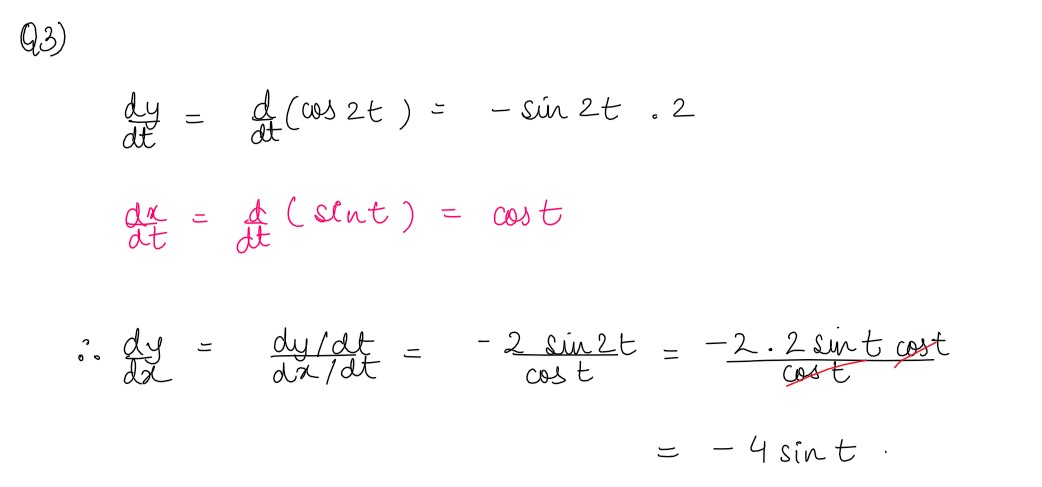 Q3)
dy/dt = d/dt (cos 2t) = - sin 2t . 2
dx/dt = d/dt (sint) = cos t
∴ dy/dx = (dy/dt)/(dx/dt) = - 2 sin 2t / cos t = -2 . 2 sin t cost / cos t
= - 4 sin t .